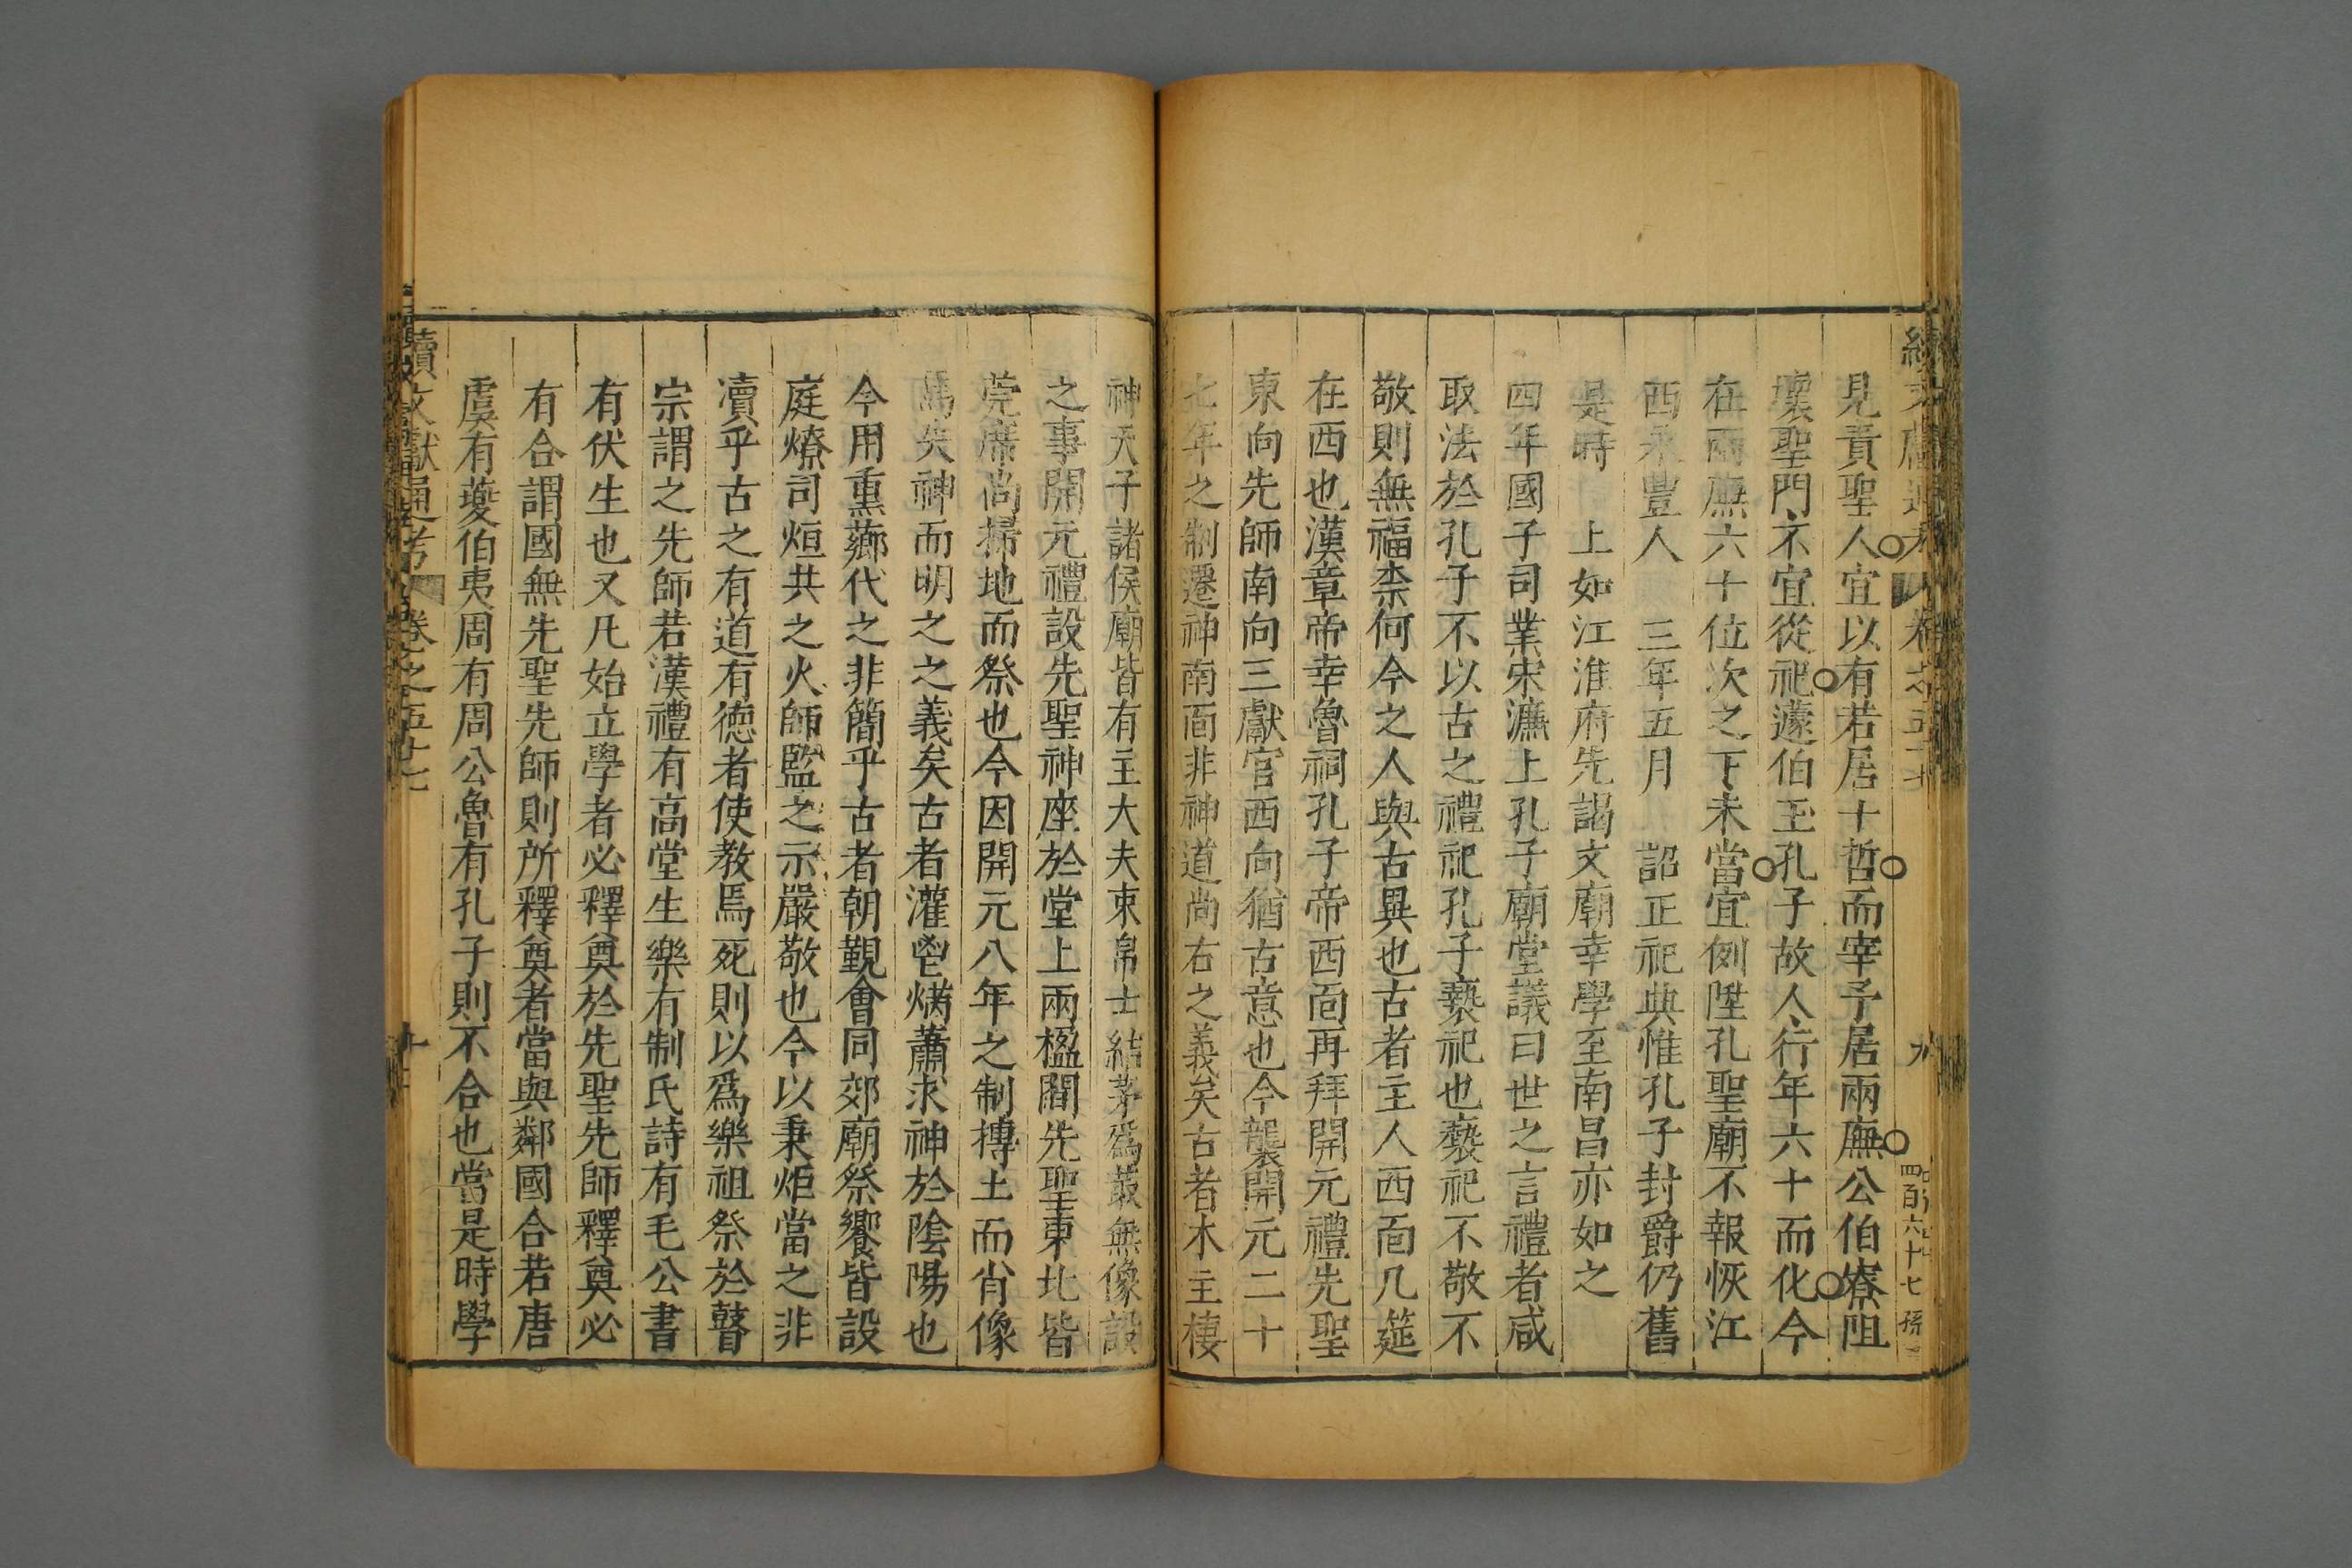 續文獻通考 卷之五十七 九
四百六十七
見責聖人宜以有若居十哲而宰予居兩廡公伯寮阻
壞聖門不宜從祀蘧伯玉孔子故人行年六十而化今
在兩廡六十位次之下未當宜例陞孔聖廟不報恢江
西永豐人 三年五月 詔正祀典惟孔子封爵仍舊
是時 上如江淮府先謁文廟幸學至南昌亦如之
四年國子司業宋濂上孔子廟堂議曰世之言禮者咸
取法於孔子不以古之禮祀孔子褻祀也褻祀不敬不
敬則無福柰何今之人與古異也古者主人西面几筵
在西也漢章帝幸魯祠孔子帝西面再拜開元禮先聖
東向先師南向三獻官西向猶古意也今襲開元二十
七年之制遷神南面非神道尚右之義矣古者木主棲
神天子諸侯廟皆有主大夫束帛士結茅爲菆無像設
之事開元禮設先聖神座於堂上兩楹間先聖東北皆
莞席尚掃地而祭也今因開元八年之制摶土而肖像
焉矣神而明之之義矣古者灌鬯焫蕭求神於陰陽也
今用熏薌代之非簡乎古者朝覲會同郊廟祭饗皆設
庭燎司烜共之火師監之示嚴敬也今以秉炬當之非
凟乎古之有道有德者使教焉死則以爲樂祖祭於瞽
宗謂之先師若漢禮有高堂生樂有制氏詩有毛公書
有伏生也又凡始立學者必釋奠於先聖先師釋奠必
有合謂國無先聖先師則所釋奠者當與鄰國合若唐
虞有夔伯夷周有周公魯有孔子則不合也當是時學
續文獻通考 卷之五十七 十